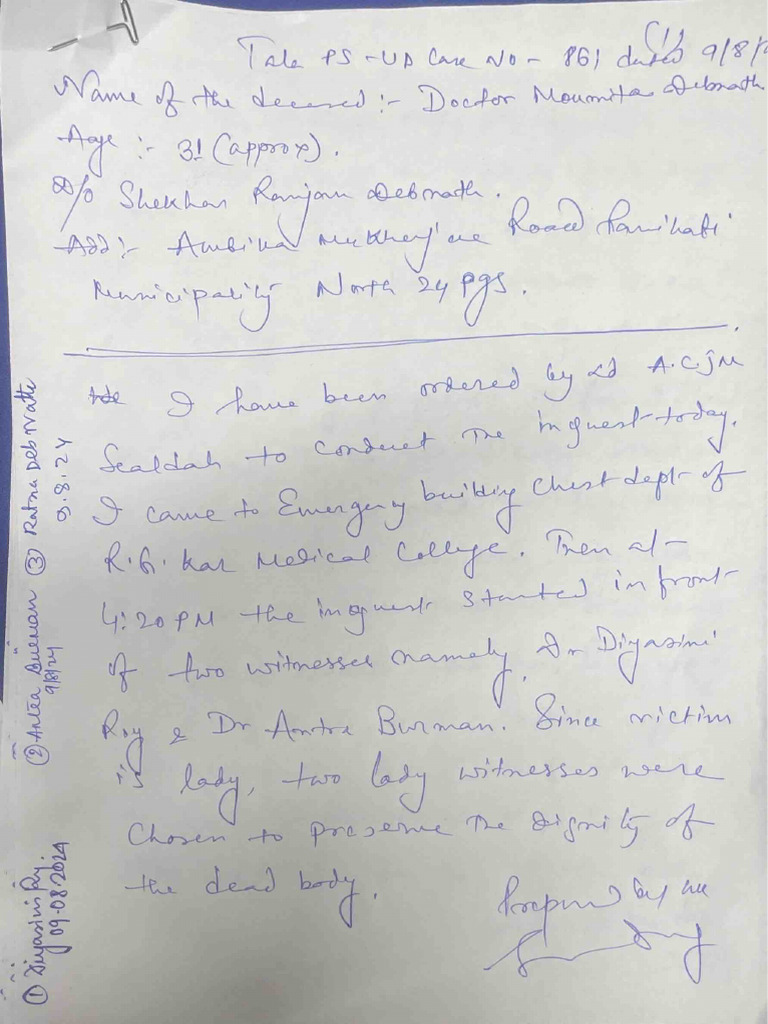 (1)
Tala PS - UD Case No - 861 dated 9/8/
Name of the deceased :- Doctor Moumita Debnath.
Age :- 31 (approx).
D/o Shekhar Ranjan Debnath.
Add :- Ambika Mukherjee Road Panihati
Municipality North 24 Pgs.
I have been ordered by Ld A.C.J.M
Sealdah to conduct the inquest today.
I came to Emergency building Chest dept of
R.G. Kar Medical College. Then at
4:20 PM the inquest started in front
of two witnesses namely, Dr Diyasini
Roy & Dr Antra Burman. Since victim
is lady, two lady witnesses were
chosen to preserve the dignity of
the dead body.
Prepared by me
① Diyasini Roy.
09.08.2024
② Antra Burman
9/8/24
③ Ratna Debnath
9.8.24